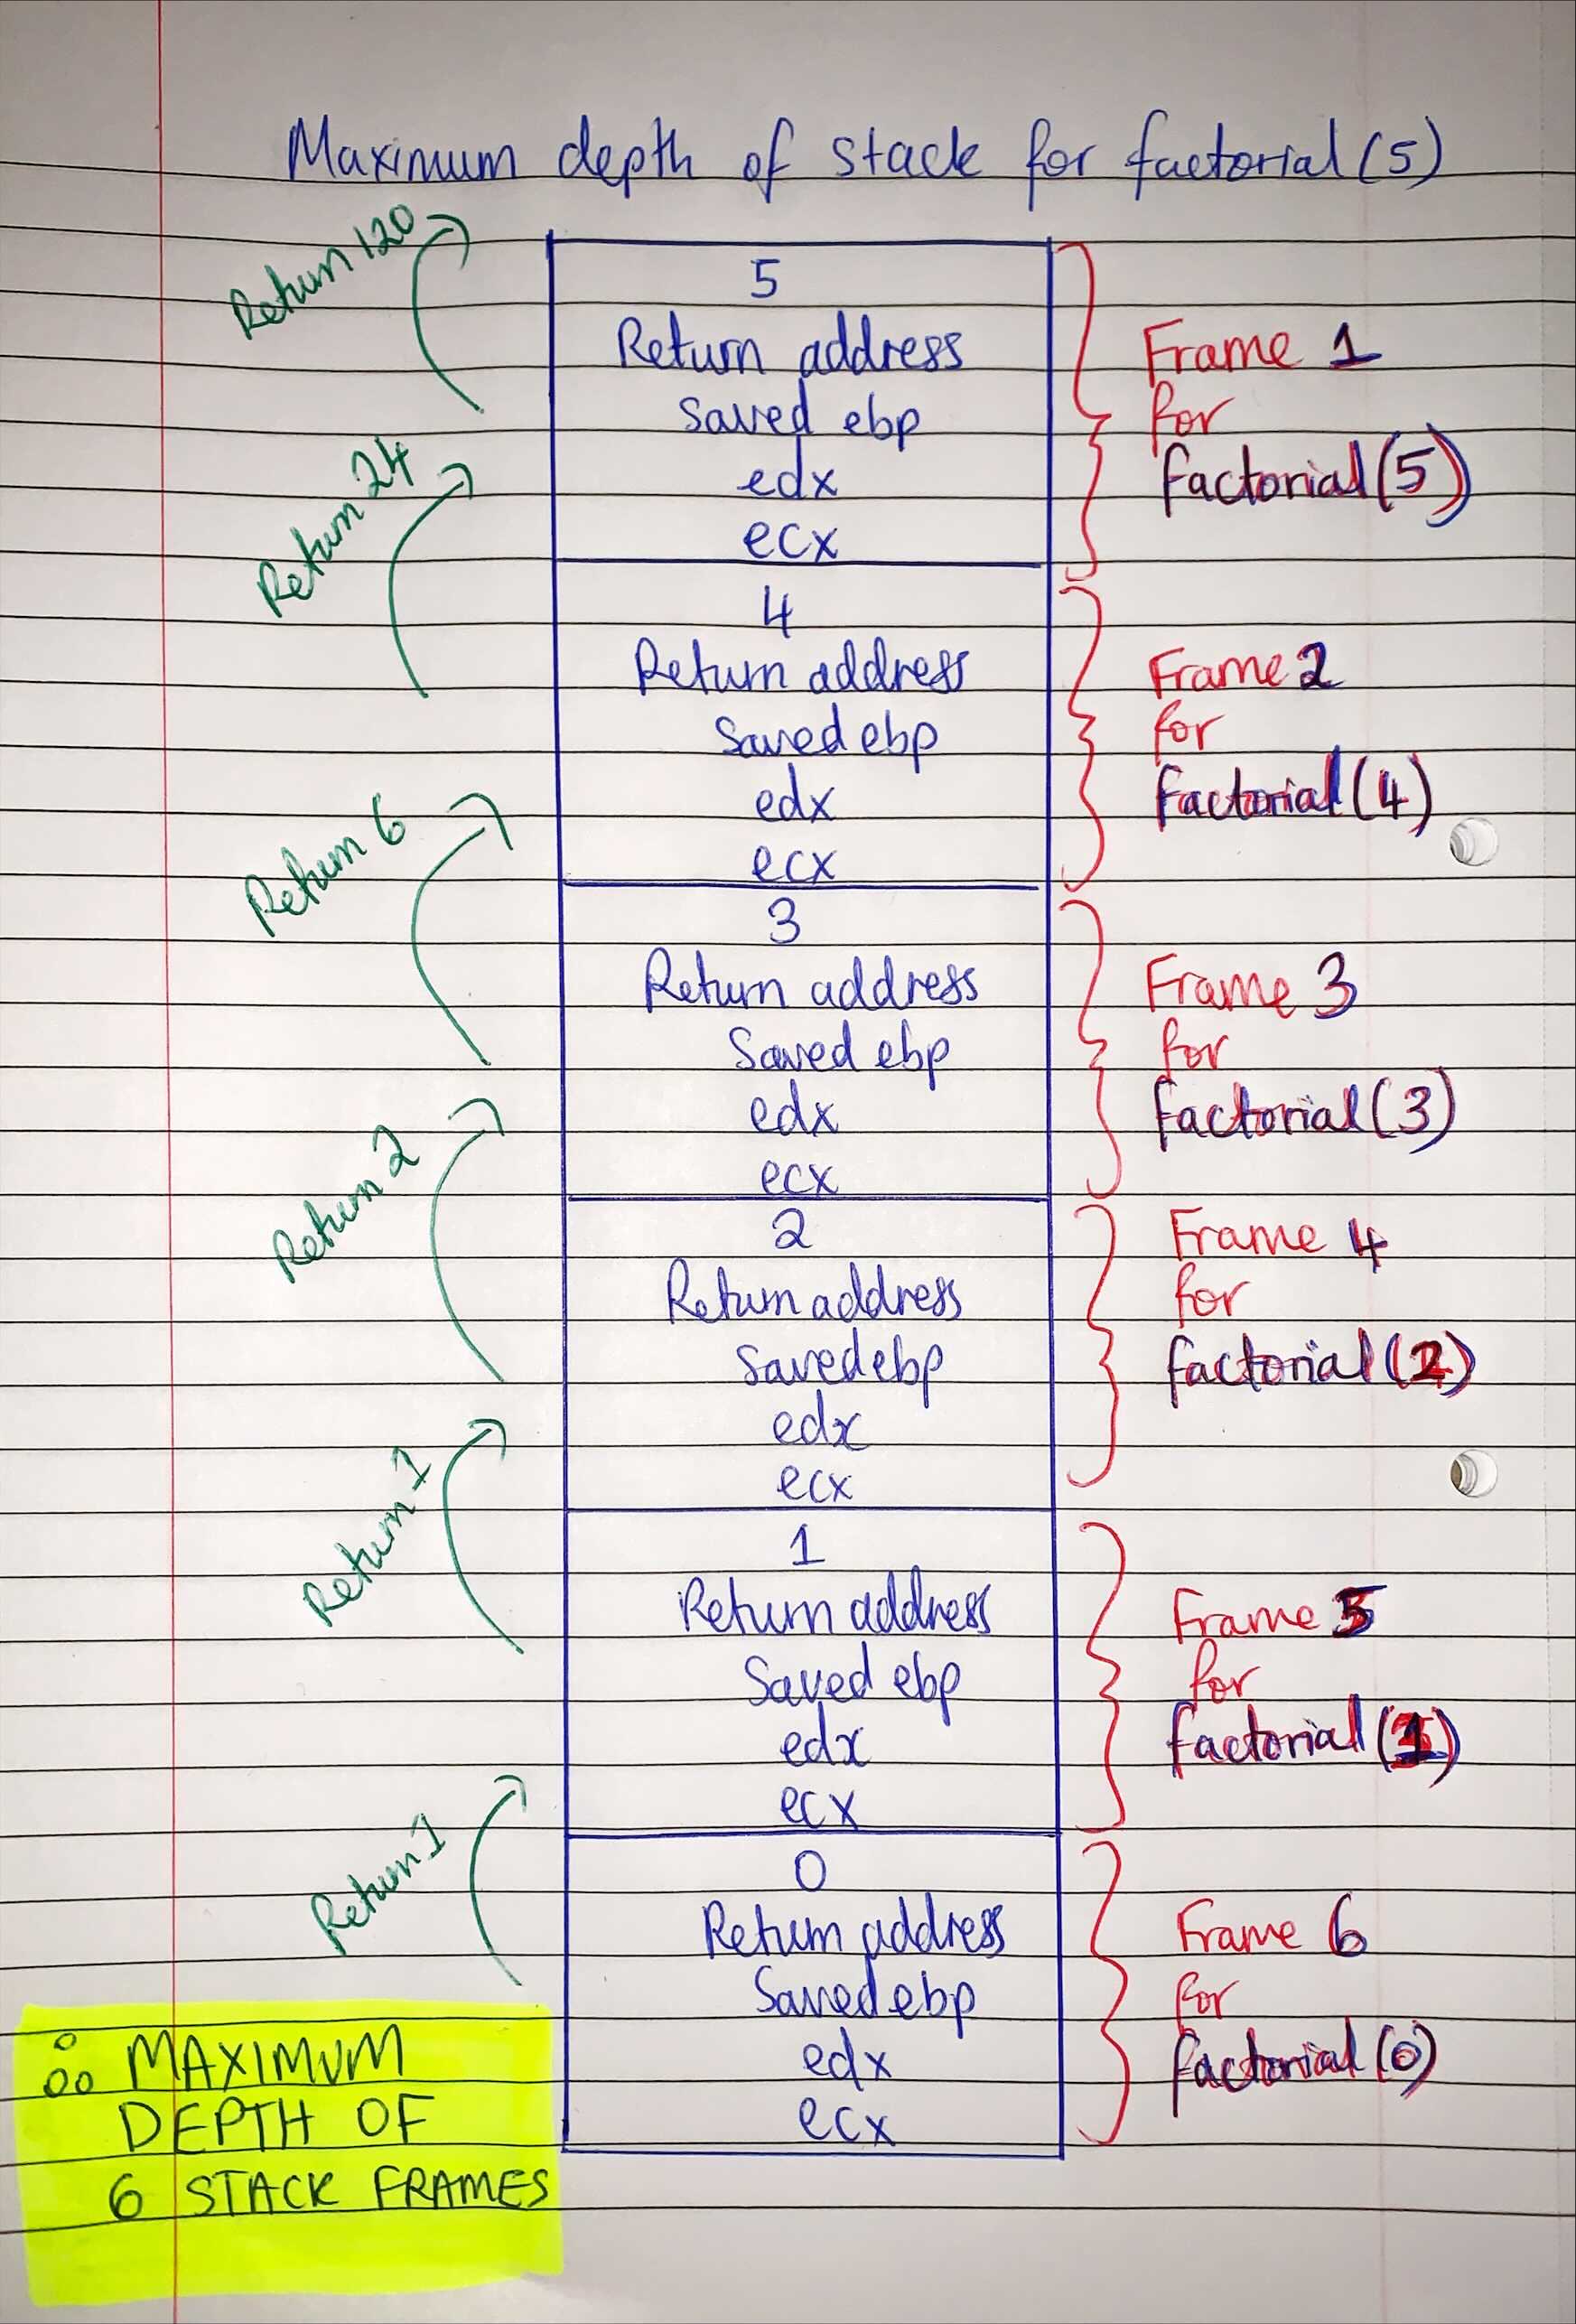 Maximum depth of stack for factorial(5)
Return 120
5
Return address
Saved ebp
edx
ecx
Frame 1
for
factorial(5)
Return 24
4
Return address
Saved ebp
edx
ecx
Frame 2
for
factorial(4)
Return 6
3
Return address
Saved ebp
edx
ecx
Frame 3
for
factorial(3)
Return 2
2
Return address
Saved ebp
edx
ecx
Frame 4
for
factorial(2)
Return 1
1
Return address
Saved ebp
edx
ecx
Frame 5
for
factorial(1)
Return 1
0
Return address
Saved ebp
edx
ecx
Frame 6
for
factorial(0)
∴ MAXIMUM
DEPTH OF
6 STACK FRAMES